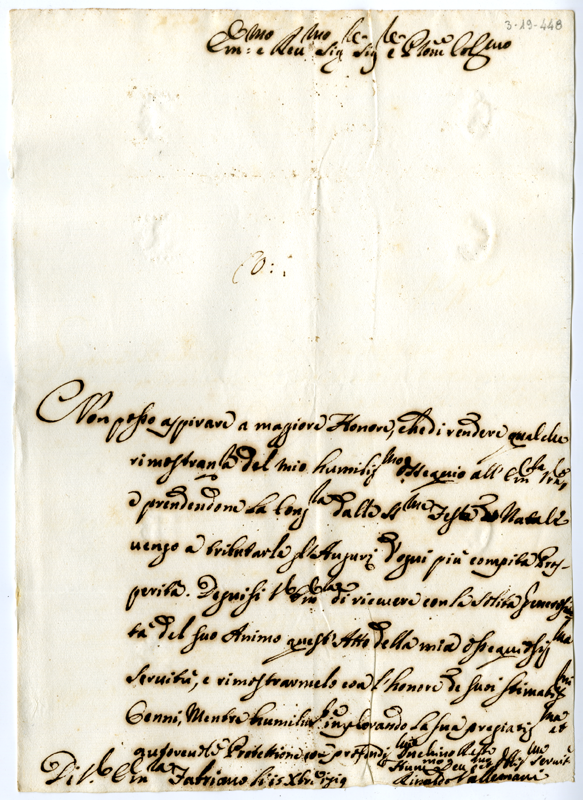 3-19-448
Em:o e Reu:mo Sig.r Sig.r e Pron.e Col.mo
Non posso aspirare a maggiore Honore, che di rendere qualche
rimostranza del mio humiliss.mo Ossequio all'Em.za Vra,
e prendendone la Cong.ra dalle S.me Feste di Natale
uengo a tributarle gl'Augurj d'ogni più compita Pros-
perità. Degnisi V.ra Em.za di riceuere con la solita Generosi-
tà del suo Animo quest'Atto della mia ossequiosiss.ma
seruitù, e rimostrarmelo con l'honore de suoi stimatiss.mi
Cenni, Mentre humilm.te implorando la sua pregiatiss.ma et
autoreuole Protettione con profondiss.mo Inchino Resto
Di V. Em.za Fabriano li 15 Xbre
Hum.mo Deu.mo Seruit.re
Rinaldo Vallemani